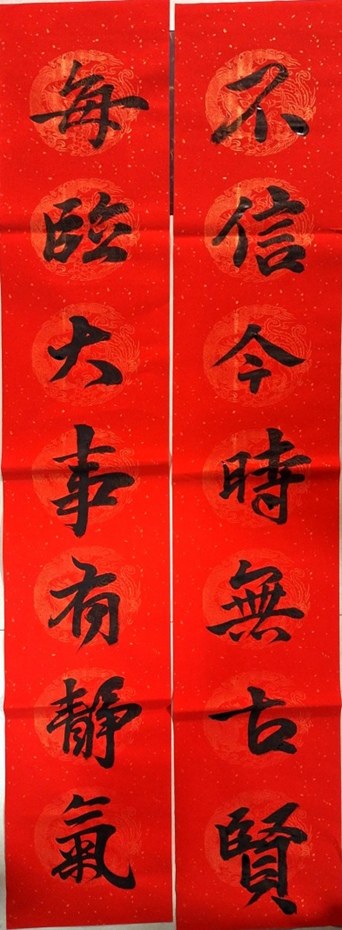 不信今時無古賢
每臨大事有靜氣